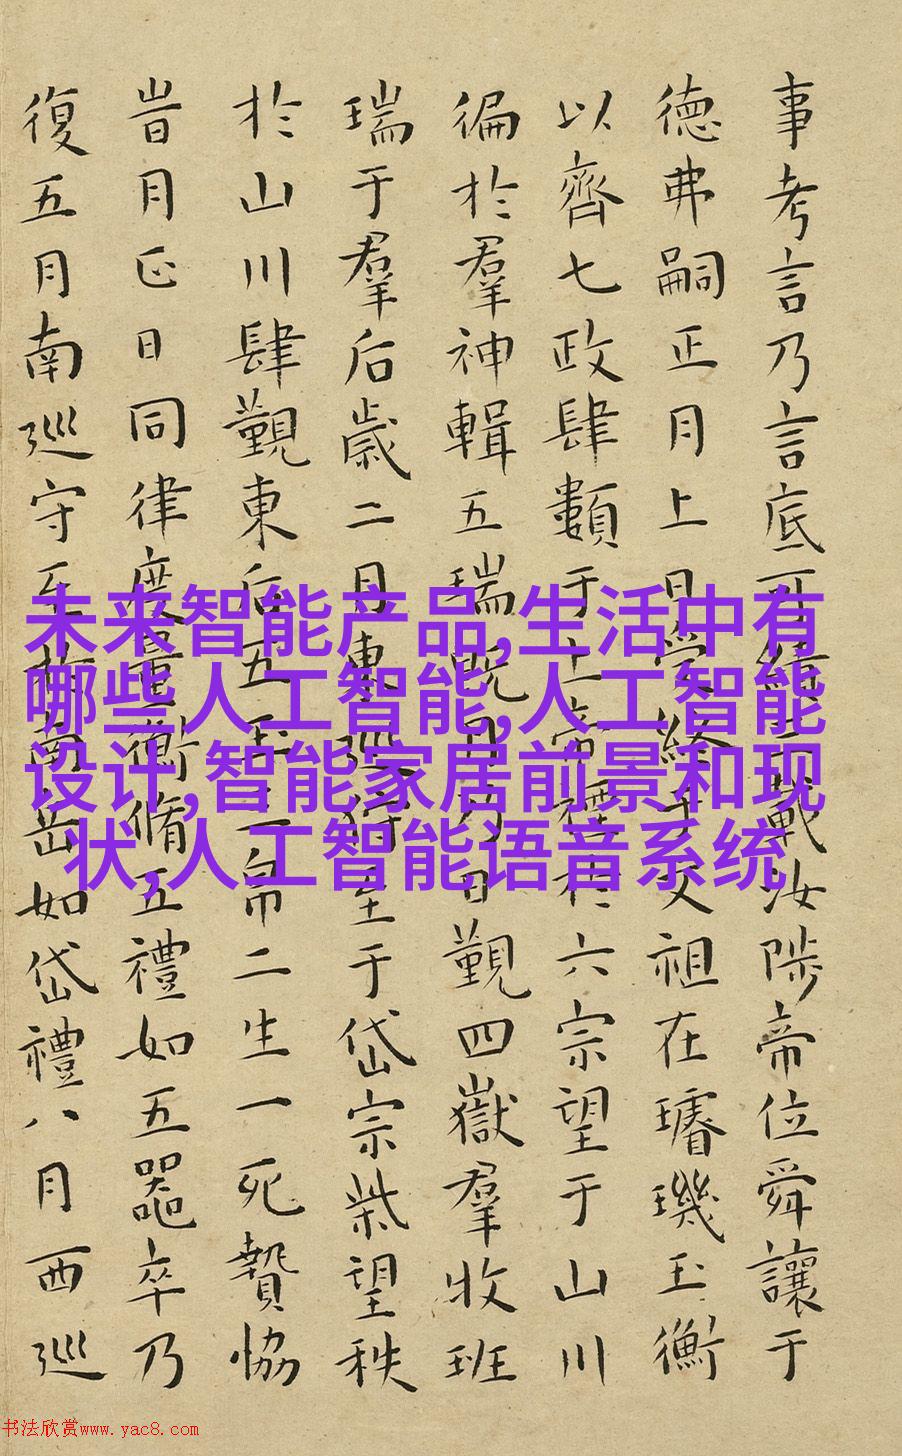 事考言乃言底可績三載汝陟帝位舜讓于
德弗嗣正月上日受終于文祖在璿璣玉衡
以齊七政肆類于上帝禋於六宗望于山川
徧於羣神輯五瑞既月乃日覲四嶽羣牧班
瑞于羣后歲二月東巡狩至于岱宗柴望秩
於山川肆覲東后五玉三帛二生一死贄協
旹月正日同律度量衡脩五禮如五器卒乃
復五月南巡守至於南岳如岱禮八月西巡
未来智能产品,生活中有
哪些人工智能,人工智能
设计,智能家居前景和现
状,人工智能语音系统
书法欣赏www.yac8.com